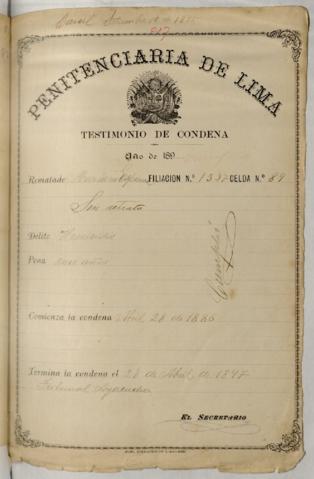 PENITENCIARIA DE LIMA
TESTIMONIO DE CONDENA
Año de 189
Rematado FILIACION N.º 1337 CELDA N.º 89
Sin retrato
Delito Homicidio
Pena once años
Cumplió
Comienza la condena Abril 28 de 1886
Termina la condena el 28 de Abril de 1897
Tribunal Ayacucho
EL SECRETARIO